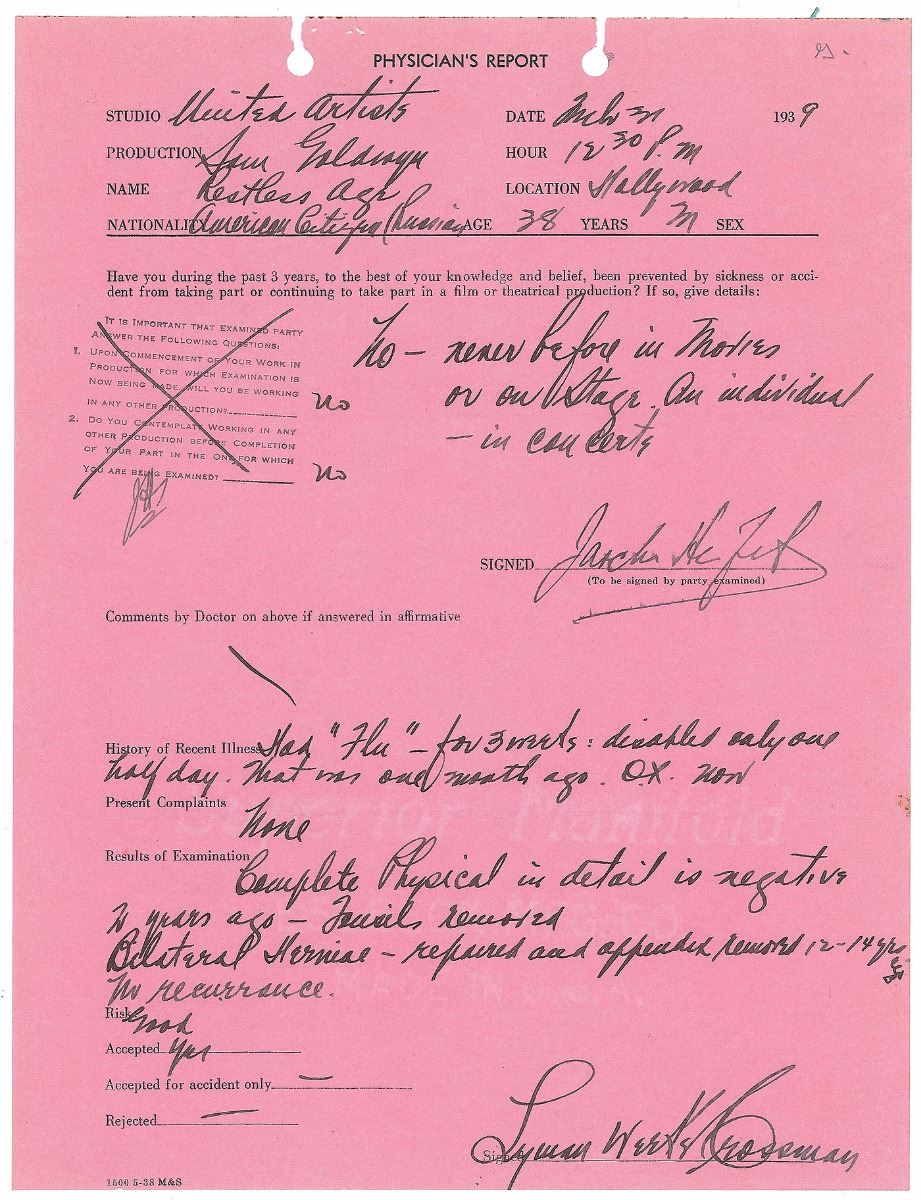 PHYSICIAN'S REPORT
STUDIO United Artists DATE Mch 31 1939
PRODUCTION Sam Goldwyn HOUR 12 30 P.M
NAME Restless Age LOCATION Hollywood
NATIONALITY American Citizen (Russian AGE 38 YEARS M SEX
Have you during the past 3 years, to the best of your knowledge and belief, been prevented by sickness or acci-
dent from taking part or continuing to take part in a film or theatrical production? If so, give details:
IT IS IMPORTANT THAT EXAMINED PARTY
ANSWER THE FOLLOWING QUESTIONS:
1. UPON COMMENCEMENT OF YOUR WORK IN
PRODUCTION FOR WHICH EXAMINATION IS
NOW BEING MADE, WILL YOU BE WORKING
IN ANY OTHER PRODUCTION? No
2. DO YOU CONTEMPLATE WORKING IN ANY
OTHER PRODUCTION BEFORE COMPLETION
OF YOUR PART IN THE ONE FOR WHICH
YOU ARE BEING EXAMINED? No
No – never before in Movies
or on Stage. An individual
– in concerts
SIGNED Jascha Heifetz
(To be signed by party examined)
Comments by Doctor on above if answered in affirmative
History of Recent Illness Had "Flu" – for 3 weeks: disabled only one
half day. That was one month ago. O.K. now
Present Complaints
None
Results of Examination
Complete Physical in detail is negative
years ago – Tonsils removed
Bilateral Herniae – repaired and appendix removed 12-14 yrs
No recurrance.
Risk Good
Accepted Yes
Accepted for accident only —
Rejected —
Signed Lyman Weeks Crossman
1500 5-38 M&S